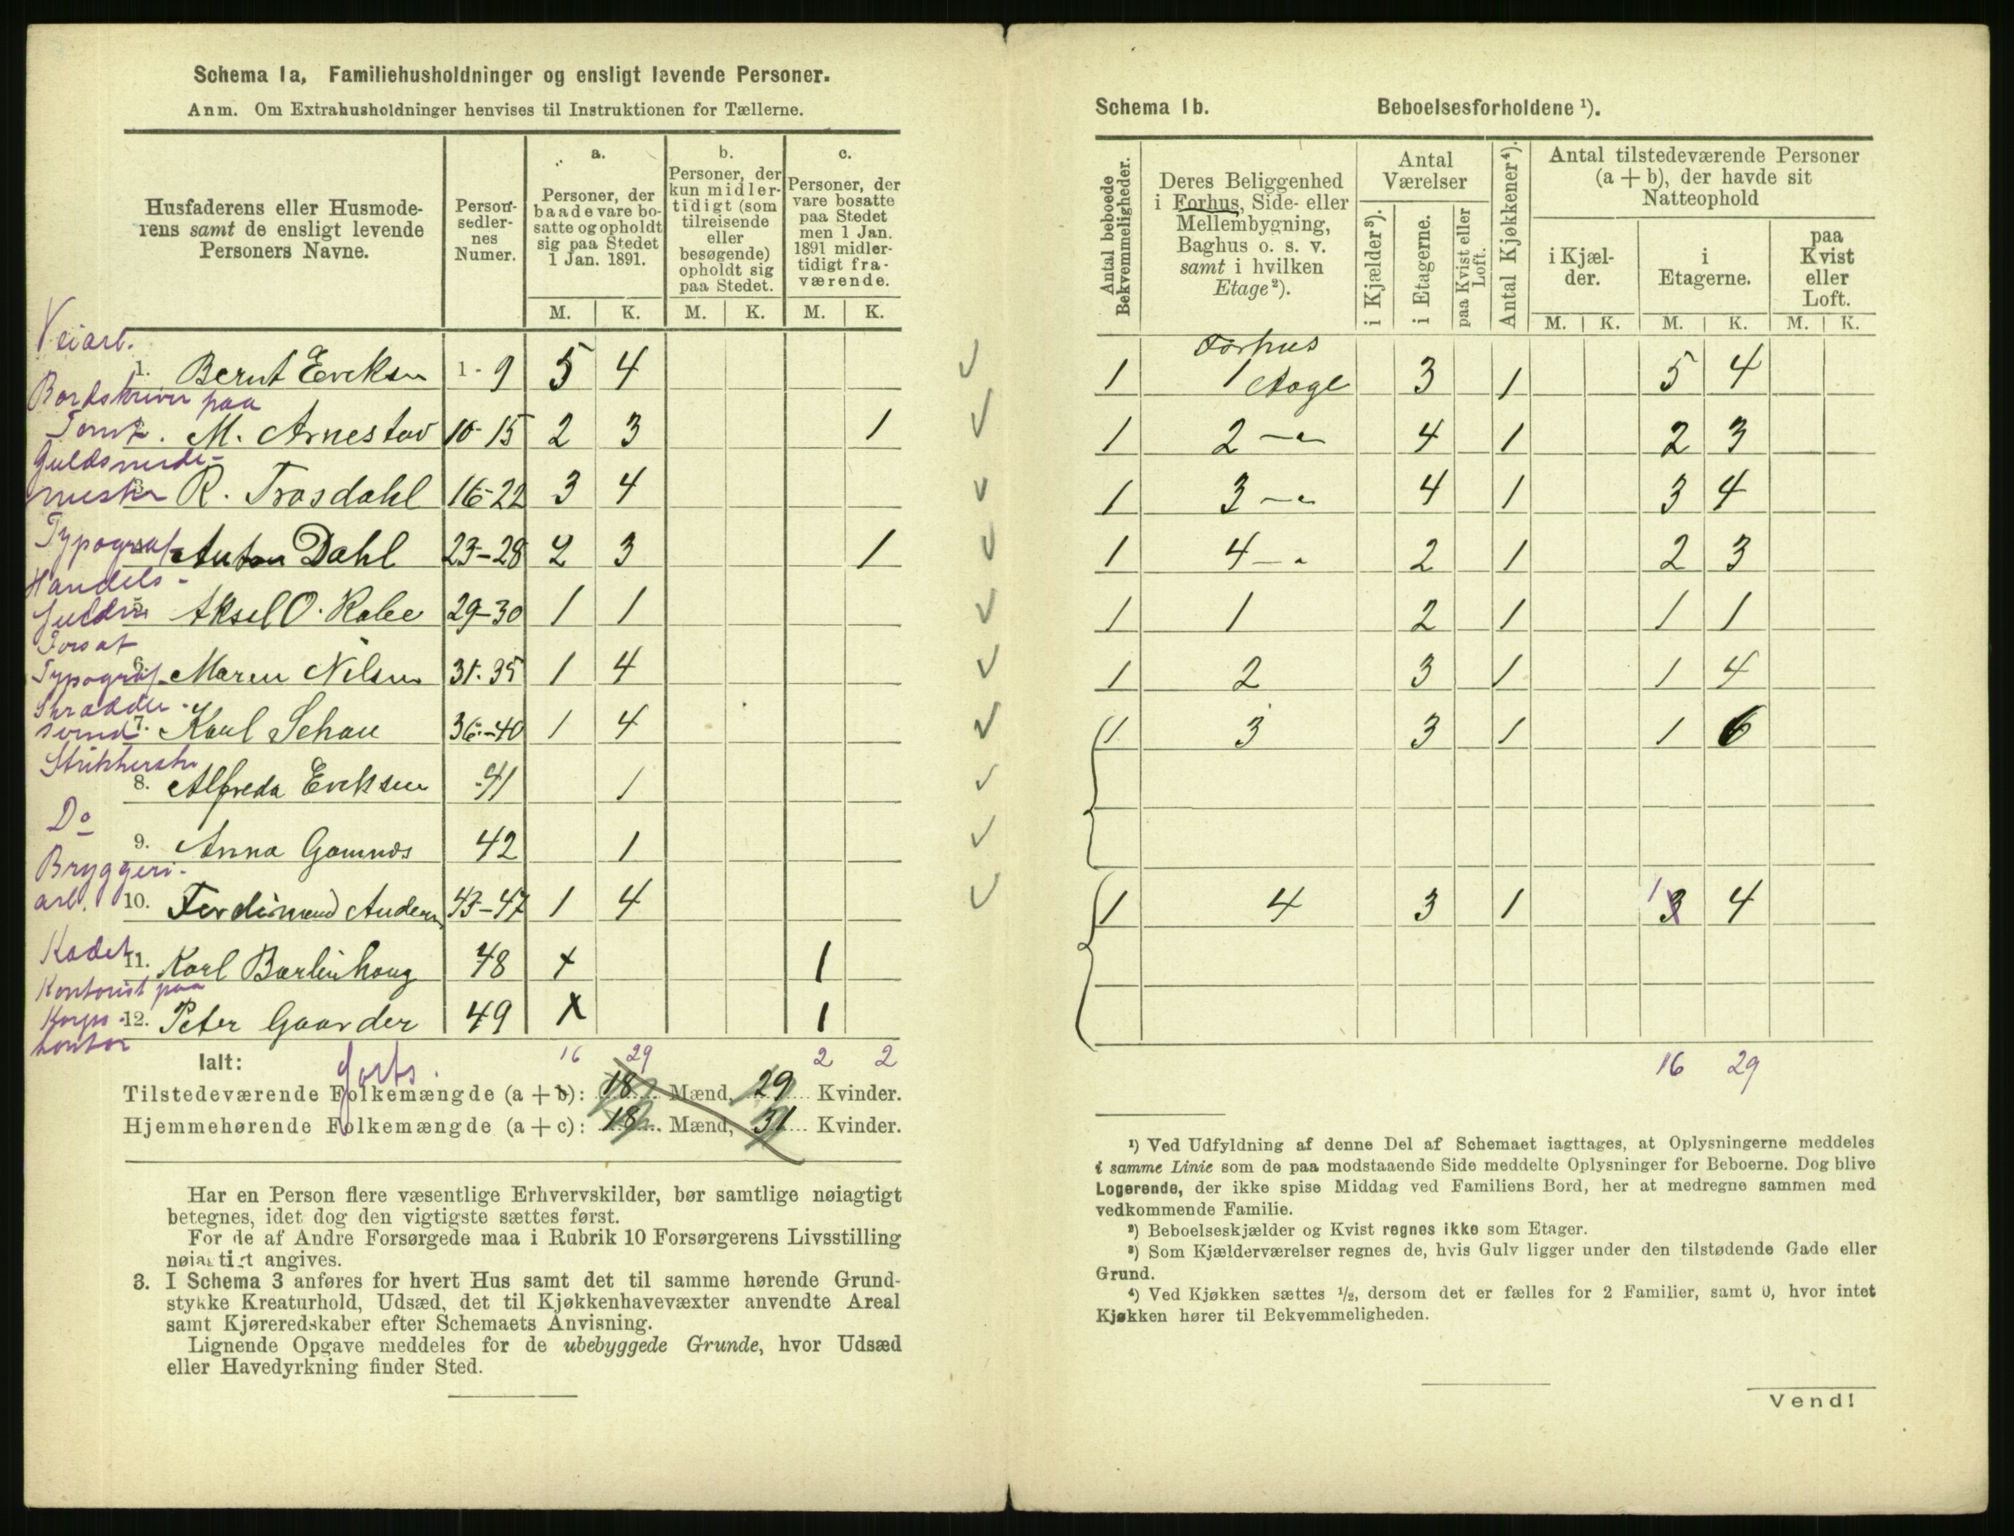 Schema 1a, Familiehusholdninger og ensligt levende Personer.
Anm. Om Extrahusholdninger henvises til Instruktionen for Tællerne.
Husfaderens eller Husmode-
rens samt de ensligt levende
Personers Navne.
Person-
sedler-
nes
Numer.
a.
Personer, der
baade vare bo-
satte og opholdt
sig paa Stedet
1 Jan. 1891.
b.
Personer, der
kun midler-
tidigt (som
tilreisende
eller
besøgende)
opholdt sig
paa Stedet.
c.
Personer, der
vare bosatte
paa Stedet
men 1 Jan.
1891 midler-
tidigt fra-
værende.
M. K. M. K. M. K.
Veiarb.
1. Bernt Ericksen 1-9 5 4
Bordskriver paa
Tomt. M. Arnestad 10-15 2 3 1
Guldsmede-
mester R. Trosdahl 16-22 3 4
Typograf Anton Dahl 23-28 2 3 1
Handels-
Aksel O. Rabe 29-30 1 1
Forsat
Typograf 6. Maren Nilsen 31-35 1 4
Skrædder-
svend 7. Karl Schau 36-40 1 4
8. Alfreda Ericksen 41 1
Do
9. Anna Gamnæs 42 1
Bryggeri-
arb. 10. Ferdinand Andersen 43-47 1 4
Kadet 11. Karl Barlinhaug 48 x 1
Kontorist paa
Korps- 12. Peter Gaarder 49 x 1
kontor
Ialt: 16 29 2 2
Forts.
Tilstedeværende Folkemængde (a + b): 18 Mænd, 29 Kvinder.
Hjemmehørende Folkemængde (a + c): 18 Mænd, 31 Kvinder.
Har en Person flere væsentlige Erhvervskilder, bør samtlige nøiagtigt
betegnes, idet dog den vigtigste sættes først.
For de af Andre Forsørgede maa i Rubrik 10 Forsørgerens Livsstilling
nøiagtigt angives.
3. I Schema 3 anføres for hvert Hus samt det til samme hørende Grund-
stykke Kreaturhold, Udsæd, det til Kjøkkenhavevæxter anvendte Areal
samt Kjøreredskaber efter Schemaets Anvisning.
Lignende Opgave meddeles for de ubebyggede Grunde, hvor Udsæd
eller Havedyrkning finder Sted.
Schema 1b. Beboelsesforholdene ¹).
Antal beboede
Bekvemmeligheder.
Deres Beliggenhed
i Forhus, Side- eller
Mellembygning,
Baghus o. s. v.
samt i hvilken
Etage ²).
Antal
Værelser
i Kjælder ³).
i Etagerne.
paa Kvist eller
Loft.
Antal Kjøkkener ⁴).
Antal tilstedeværende Personer
(a + b), der havde sit
Natteophold
i Kjæl-
der.
i
Etagerne.
paa
Kvist
eller
Loft.
M. K. M. K. M. K.
Forhus
1 1 Etage 3 1 5 4
1 2 — " — 4 1 2 3
1 3 — " — 4 1 3 4
1 4 — " 2 1 2 3
1 1 2 1 1 1
1 2 3 1 1 4
1 3 3 1 1 6
1 4 3 1 1 3 4
16 29
¹) Ved Udfyldning af denne Del af Schemaet iagttages, at Oplysningerne meddeles
i samme Linie som de paa modstaaende Side meddelte Oplysninger for Beboerne. Dog blive
Logerende, der ikke spise Middag ved Familiens Bord, her at medregne sammen med
vedkommende Familie.
²) Beboelseskjælder og Kvist regnes ikke som Etager.
³) Som Kjælderværelser regnes de, hvis Gulv ligger under den tilstødende Gade eller
Grund.
⁴) Ved Kjøkken sættes ½, dersom det er fælles for 2 Familier, samt 0, hvor intet
Kjøkken hører til Bekvemmeligheden.
Vend!